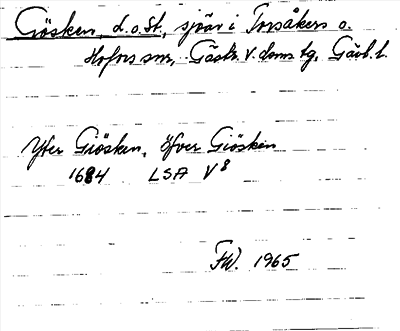 Gösken, L. o. St., sjöar i Torsåkers o.
Hofors snr, Gästr. V. doms tg, Gävl. l.
Yter Giösken, öfver Giösken
1684 LSA V 8
FW. 1965